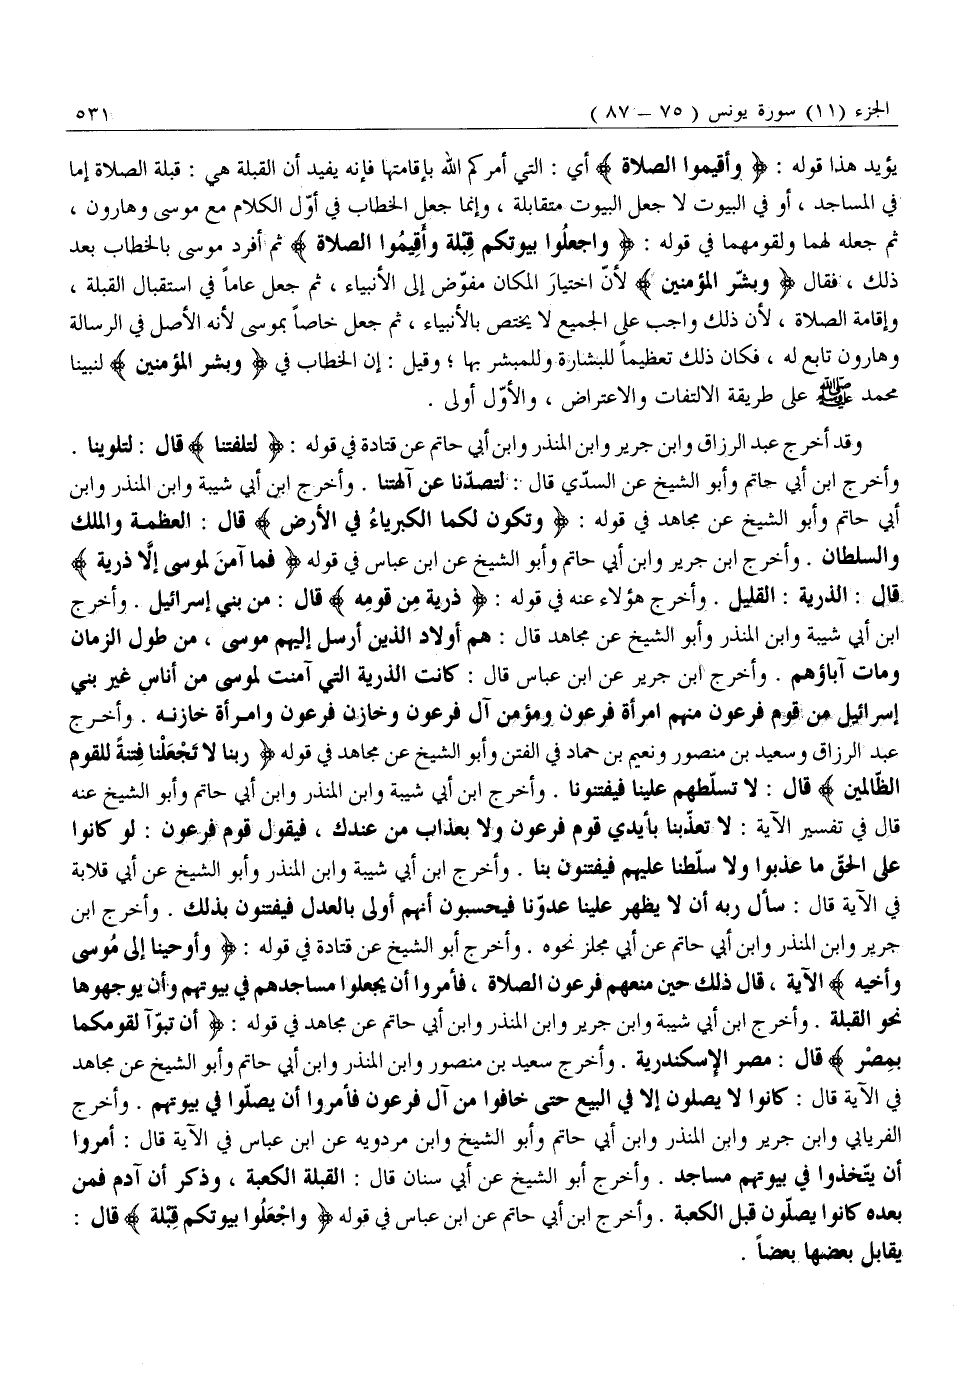 الجزء (١١) سورة يونس ( ٧٥ – ٨٧ )
٥٣١
يؤيد هذا قوله : ﴿ وأقيموا الصلاة ﴾ أي : التي أمركم الله بإقامتها فإنه يفيد أن القبلة هي : قبلة الصلاة إما
في المساجد ، أو في البيوت لا جعل البيوت متقابلة ، وإنما جعل الخطاب في أوّل الكلام مع موسى وهارون ،
ثم جعله لهما ولقومهما في قوله : ﴿ واجعلُوا بيوتكم قِبْلة وأَقِيمُوا الصلاة ﴾ ثم أفرد موسى بالخطاب بعد
ذلك ، فقال ﴿ وبشّر المؤمنين ﴾ لأنّ اختيارَ المكان مفوّض إلى الأنبياء ، ثم جعل عاماً في استقبال القبلة ،
وإقامة الصلاة ، لأن ذلك واجب على الجميع لا يختص بالأنبياء ، ثم جعل خاصاً بموسى لأنه الأصل في الرسالة
وهارون تابع له ، فكان ذلك تعظيماً للبشارة وللمبشر بها ؛ وقيل : إن الخطاب في ﴿ وبشر المؤمنين ﴾ لنبينا
محمد ﷺ على طريقة الالتفات والاعتراض ، والأوّل أولى .
وقد أخرج عبد الرزاق وابن جرير وابن المنذر وابن أبي حاتم عن قتادة في قوله : ﴿ لتلفتنا ﴾ قال : لتلوينا .
وأخرج ابن أبي حاتم وأبو الشيخ عن السدّي قال : لتصدّنا عن آلهتنا . وأخرج ابن أبي شيبة وابن المنذر وابن
أبي حاتم وأبو الشيخ عن مجاهد في قوله : ﴿ وتكون لكما الكبرياءُ في الأرض ﴾ قال : العظمة والملك
والسلطان . وأخرج ابن جرير وابن أبي حاتم وأبو الشيخ عن ابن عباس في قوله ﴿ فما آمنَ لموسى إلَّا ذرية ﴾
قال : الذرية : القليل . وأخرج هؤلاء عنه في قوله : ﴿ ذرية مِن قومِه ﴾ قال : من بني إسرائيل . وأخرج
ابن أبي شيبة وابن المنذر وأبو الشيخ عن مجاهد قال : هم أولاد الذين أرسل إليهم موسى ، من طول الزمان
ومات آباؤهم . وأخرج ابن جرير عن ابن عباس قال : كانت الذرية التي آمنت لموسى من أناس غير بني
إسرائيل من قوم فرعون منهم امرأة فرعون ومؤمن آل فرعون وخازن فرعون وامرأة خازنه . وأخرج
عبد الرزاق وسعيد بن منصور ونعيم بن حماد في الفتن وأبو الشيخ عن مجاهد في قوله ﴿ ربنا لا تَجْعَلْنا فِتنةً للقوم
الظّالمين ﴾ قال : لا تسلّطهم علينا فيفتنونا . وأخرج ابن أبي شيبة وابن المنذر وابن أبي حاتم وأبو الشيخ عنه
قال في تفسير الآية : لا تعذّبنا بأيدي قوم فرعون ولا بعذاب من عندك ، فيقول قوم فرعون : لو كانوا
على الحقّ ما عذبوا ولا سلّطنا عليهم فيفتنون بنا . وأخرج ابن أبي شيبة وابن المنذر وأبو الشيخ عن أبي قلابة
في الآية قال : سأل ربه أن لا يظهر علينا عدوّنا فيحسبون أنهم أولى بالعدل فيفتنون بذلك . وأخرج ابن
جرير وابن المنذر وابن أبي حاتم عن أبي مجلز نحوه . وأخرج أبو الشيخ عن قتادة في قوله : ﴿ وأوحينا إلى مُوسى
وأخيه ﴾ الآية ، قال ذلك حين منعهم فرعون الصلاة ، فأمروا أن يجعلوا مساجدهم في بيوتهم وأن يوجهوها
نحو القبلة . وأخرج ابن أبي شيبة وابن جرير وابن المنذر وابن أبي حاتم عن مجاهد في قوله : ﴿ أن تبوّآ لقومكما
بمِصْر ﴾ قال : مصر الإسكندرية . وأخرج سعيد بن منصور وابن المنذر وابن أبي حاتم وأبو الشيخ عن مجاهد
في الآية قال : كانوا لا يصلون إلا في البيع حتى خافوا من آل فرعون فأمروا أن يصلّوا في بيوتهم . وأخرج
الفريابي وابن جرير وابن المنذر وابن أبي حاتم وأبو الشيخ وابن مردويه عن ابن عباس في الآية قال : أمروا
أن يتّخذوا في بيوتهم مساجد . وأخرج أبو الشيخ عن أبي سنان قال : القبلة الكعبة ، وذكر أن آدم فمن
بعده كانوا يصلّون قبل الكعبة . وأخرج ابن أبي حاتم عن ابن عباس في قوله ﴿ واجْعَلُوا بيوتكم قِبْلة ﴾ قال :
يقابل بعضها بعضاً .